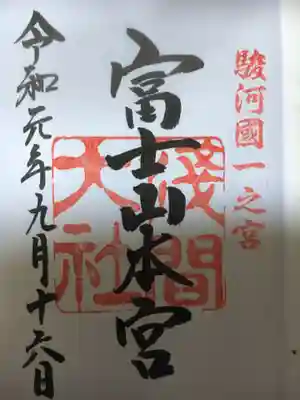 駿河國一之宮
富士山本宮
淺間大社
令和元年九月十六日